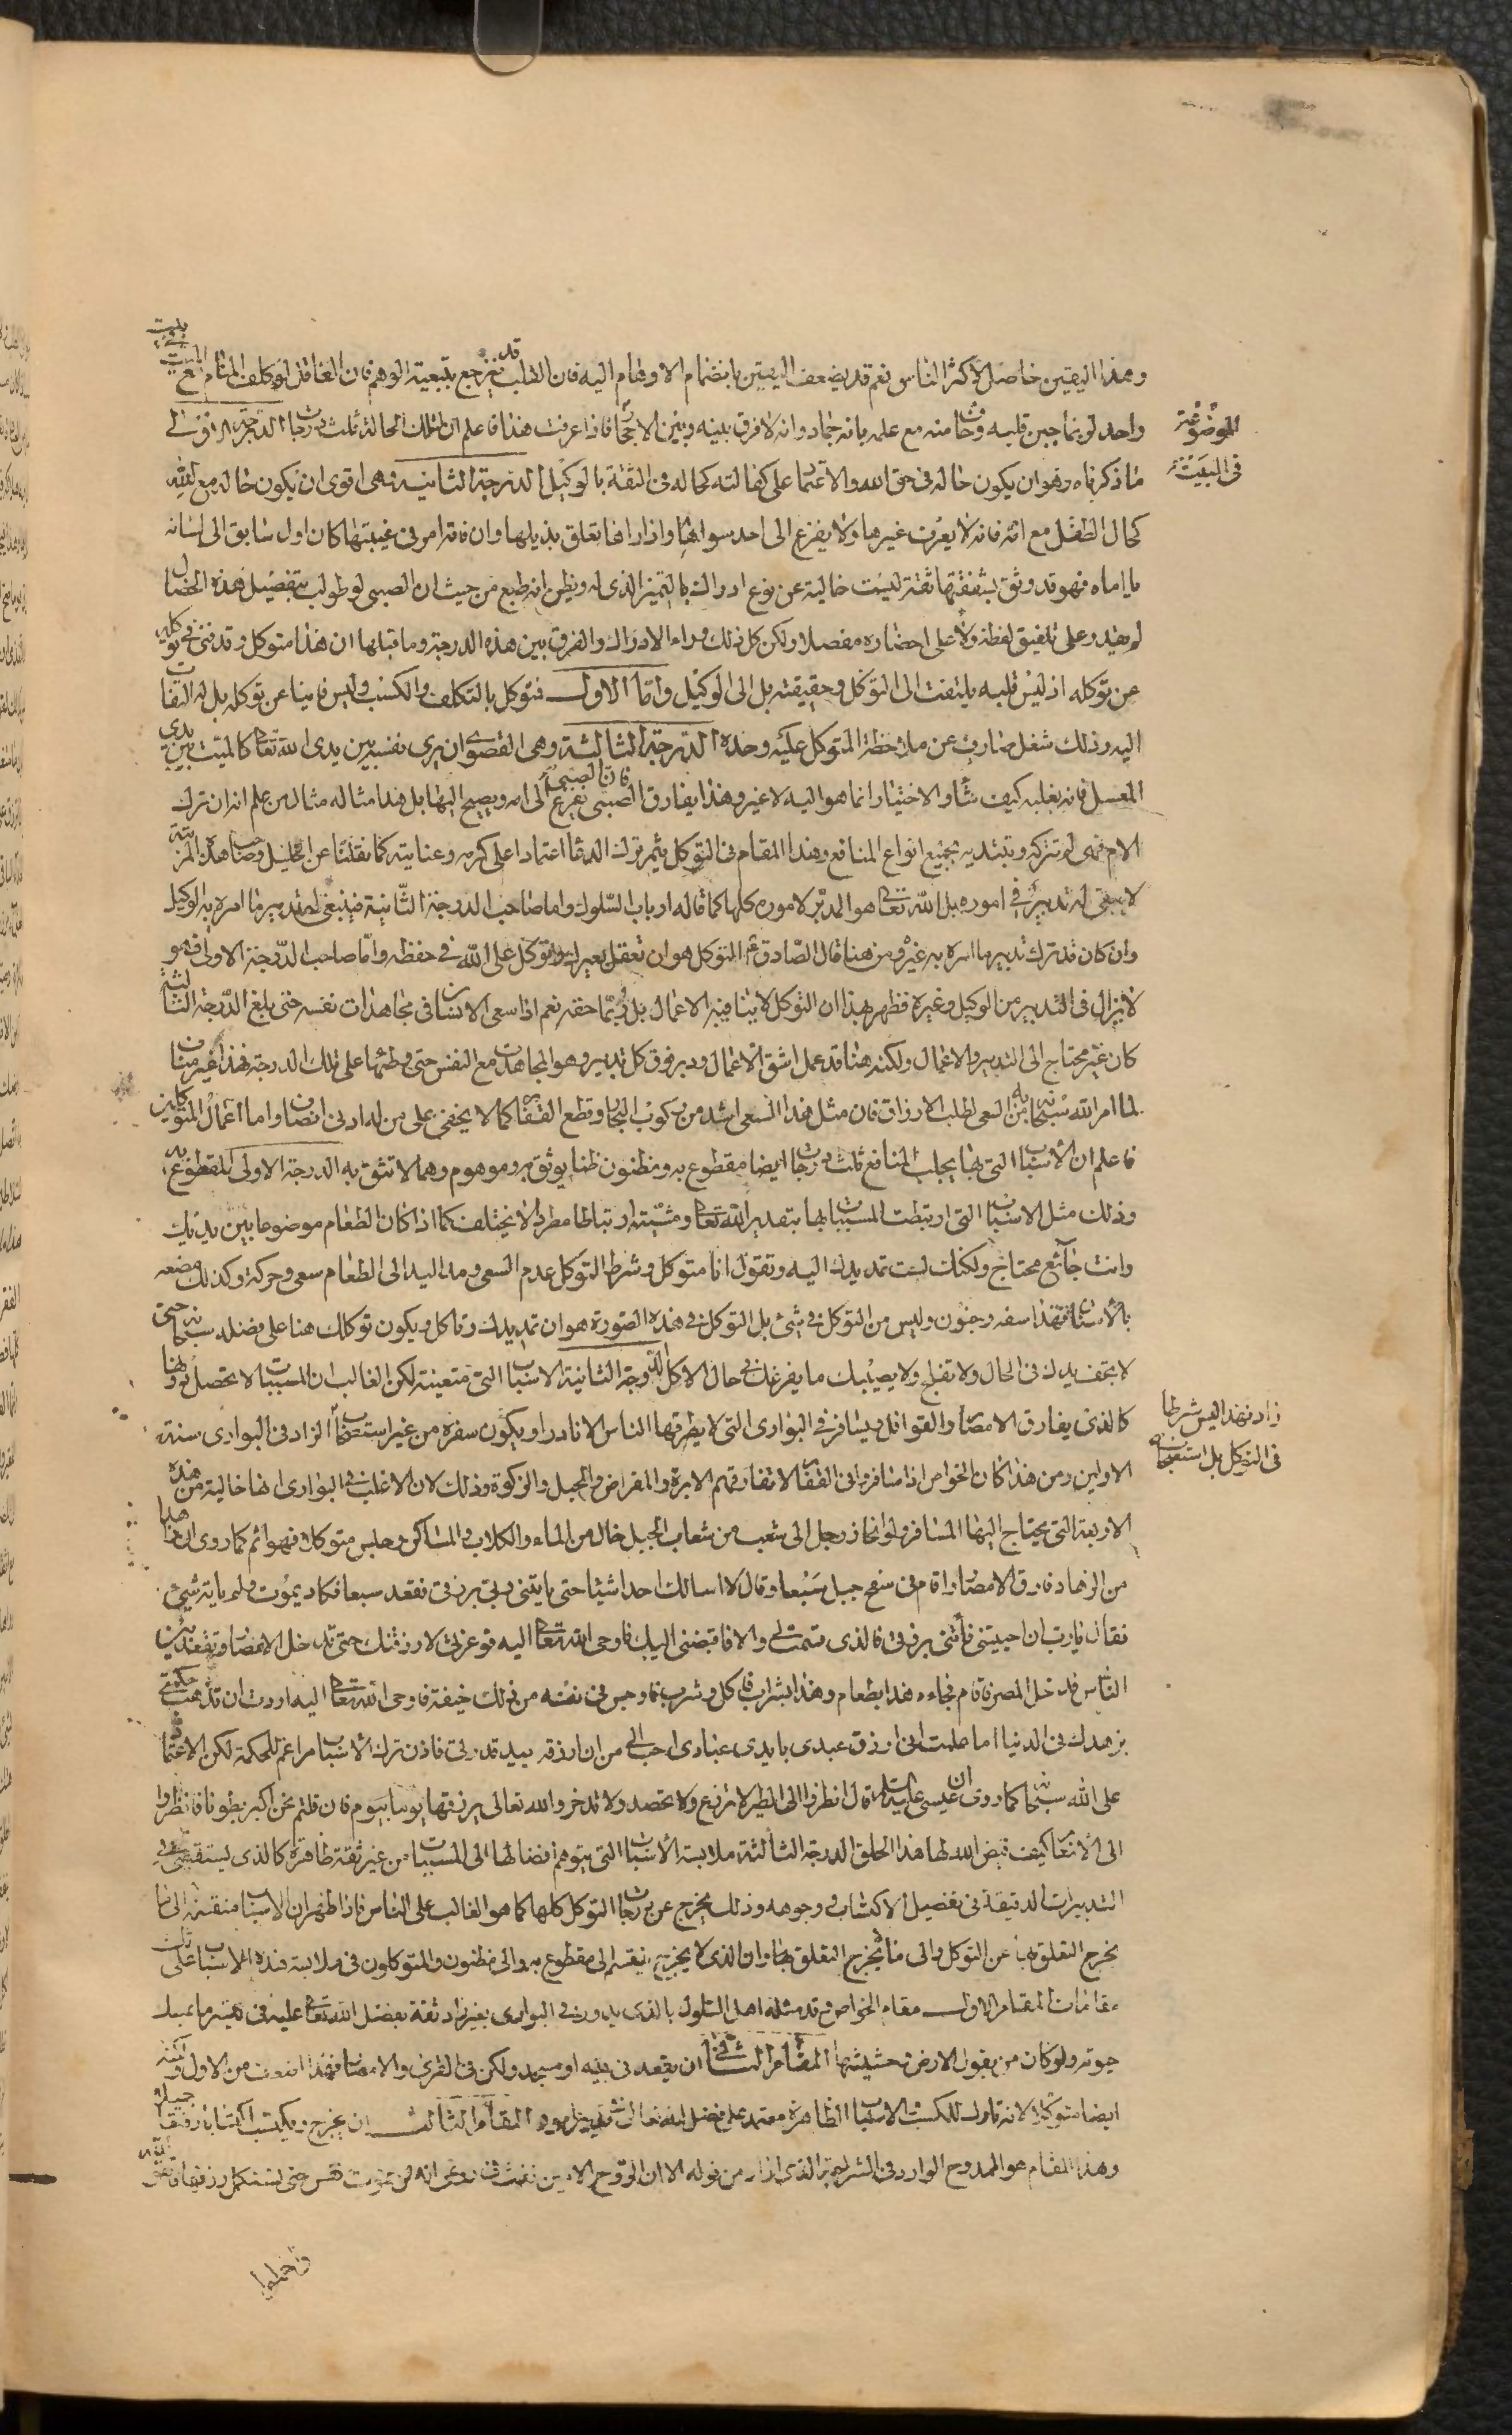 وهذا اليقين حاصل لاكثر الناس نعم قد يضعف اليقين بانضمام الاوهام اليه فان القلب قد ينزعج بتبعية الوهم فان العاقل لو كلف المنام مع الميت بيت
واحد لربما جبن قلبه وخاف منه مع علمه بانه جماد وانه لا فرق بينه وبين الاحجار فاذا عرفت هذا فاعلم ان لتلك الحالة ثلث درجات الدرجة الاولى
الموضوعة
في البيت
ما ذكرناه وهو ان يكون حاله في حق الله والاعتماد على كفالته كحاله في الثقة بالوكيل الدرجة الثانية وهى اقوى ان يكون حاله مع الله
كحال الطفل مع امه فانه لا يعرف غيرها ولا يفزع الى احد سواها واذا راها تعلق بذيلها وان نابه امر في غيبتها كان اول سابق الى لسانه
يا اماه فهو قد وثق بشفقتها ثقة ليست خالية عن نوع ادراك بالتميز الذى له ويظن انه طبع من حيث ان الصبى لو طولب بتفصيل هذه الخصال
لم يقدر على تلفيق لفظه ولا على احضاره مفصلا ولكن كل ذلك وراء الادراك والفرق بين هذه الدرجة وما قبلها ان هذا متوكل وقد فنى في توكله
عن توكله اذ ليس قلبه يلتفت الى التوكل وحقيقته بل الى الوكيل واما الاول فتوكل بالتكلف والكسب وليس فانيا عن توكله بل له التفات
اليه وذلك شغل صارف عن ملاحظة المتوكل عليه وحده الدرجة الثالثة وهى القصوى ان يرى نفسه بين يدى الله تعالى كالميت بين يدى
المغسل فانه يقلبه كيف شاء والاختيار انما هو اليه لا غير وهذا يفارق الصبى فان الصبى يفزع الى امه ويصيح اليها بل هذا مثاله مثال من علم انه ان ترك
الام فهى لم تتركه وتبتديه بجميع انواع المنافع وهذا المقام في التوكل يثمر ترك الدعا اعتمادا على كرمه وعنايته كما نقلنا عن الخليل وصاحب هذه المرتبة
لا يبقى له تدبير في اموره بل الله تعالى هو المدبر لاموره كلها كما قاله ارباب السلوك واما صاحب الدرجة الثانية فينبغى له تدبير ما امره به الوكيل
وان كان قد ترك تدبير ما امره به غيره ومن هنا قال الصادق ع التوكل هو ان تعقل بعيرك وتوكل على الله في حفظه واما صاحب الدرجة الاولى فهو
لا يزال في التدبير من الوكيل وغيره فظهر بهذا ان التوكل لا ينافيه الاعمال بل ربما حققه نعم اذا سعى الانسان في مجاهدات نفسه حتى بلغ الدرجة الثالثة
كان غير محتاج الى التدبير والاعمال ولكنه هنا قد عمل اشق الاعمال ودبر فوق كل تدبير وهو المجاهدة مع النفس حتى وطنها على تلك الدرجة فهذا غير مناف
لما امر الله سبحانه به من السعى لطلب الارزاق فان مثل هذا السعى اشد من ركوب البحار وقطع القفار كما لا يخفى على من له ادنى انصاف واما اعمال المتوكلين
فاعلم ان الاسباب التي بها يجلب المنافع ثلث درجات ايضا مقطوع به ومظنون ظنا يوثق به وموهوم وهما لا تثق به الدرجة الاولى المقطوع به
وذلك مثل الاسباب التي ارتبطت المسببات بها بتقدير الله تعالى ومشيته ارتباطا مطردا لا يختلف كما اذا كان الطعام موضوعا بين يديك
وانت جائع محتاج ولكنك لست تمد يدك اليه وتقول انا متوكل وشرط التوكل عدم السعى ومد اليد الى الطعام سعى وحركة وكذلك مضغه
بالاسنان فهذا سفه وجنون وليس من التوكل في شئ بل التوكل في هذه الصورة هو ان تمد يدك وتاكل ويكون توكلك هنا على فضله سبحانه حتى
لا يجف يدك في الحال ولا تفلج ولا يصيبك ما يفزعك في حال الاكل الدرجة الثانية الاسباب التي متعينة لكن الغالب ان المسببات لا تحصل دونها
كالذى يفارق الامصار والقوافل ويسافر في البوادى التي لا يطرقها الناس الا نادرا ويكون سفره من غير استصحاب الزاد في البوادى سنة
زاد فهذا ليس شرطا
في التوكل بل استصحاب
الاولين ومن هذا كان الخواص اذا سافر في القفار لا تفارقهم الابرة والمقراض والحبل والركوة وذلك لان الاغلب في البوادى انها خالية من هذه
الاربعة التي يحتاج اليها المسافر ولو انحاز رجل الى شعب من شعاب الجبل خال من الماء والكلاء والمساكن وجلس متوكلا فهو اثم كما روى ان زاهدا
من الزهاد فارق الامصار واقام في سفح جبل سبعا وقال لا اسالك احدا شيئا حتى ياتينى ربى برزقى فقعد سبعا فكاد يموت ولم ياته شئ
فقال يا رب ان احييتنى فاتنى برزقى الذى قسمت لي والا فاقبضنى اليك فاوحى الله تعالى اليه فوعزتى لا رزقتك حتى تدخل الامصار وتقعد بين
الناس فدخل المصر فاقام فجاءه هذا بطعام وهذا بشراب فاكل وشرب فاوجس في نفسه من ذلك خيفة فاوحى الله تعالى اليه اردت ان تذهب حكمتى
بزهدك في الدنيا اما علمت انى ارزق عبدى بايدى عبادى احب الى من ان ارزقه بيد قدرتى فاذن ترك الاسباب مراغم للحكمة لكن الاعتماد
على الله سبحانه كما روى ان عيسى عليه السلام قال انظروا الى الطير لا تزرع ولا تحصد ولا تدخر والله تعالى يرزقها يوما بيوم فان قلتم نحن اكبر بطونا فانظروا
الى الانعام كيف قيض الله لها هذا الخلق الدرجة الثالثة ملابسة الاسباب التي يتوهم افضائها الى المسببات من غير ثقة ظاهرة كالذى يستقصى في
التدبيرات الدقيقة في تفصيل الاكتساب ووجوهه وذلك يخرج عن درجات التوكل كلها كما هو الغالب على الناس فاذا ظهر ان الاسباب منقسمة الى ما
يخرج التعلق بها عن التوكل والى ما لا يخرج التعلق بها وان الذى لا يخرج ينقسم الى مقطوع به والى مظنون والمتوكلون في ملابسة هذه الاسباب على ثلث
مقامات المقام الاول مقام الخواص وقد مثله اهل السلوك بالذى يدور في البوادى بغير زاد ثقة بفضل الله تعالى عليه في تيسر ما يمسك
حوته ولو كان من بقول الارض وحشيشها المقام الثانى ان يقعد في بيته او مسجد ولكن في القرى والامصار فهذا اضعف من الاول ولكنه
ايضا متوكل لانه تارك للكسب والاسباب الظاهرة معتمد على فضل الله تعالى المقام الثالث ان يخرج ويكتسب اكتسابا رفيقا جميلا
وهذا المقام هو الممدوح الوارد في الشريعة من قوله الا ان الروح الامين نفث في روعى انه لن تموت نفس حتى تستكمل رزقها فاتقوا الله
واجملوا